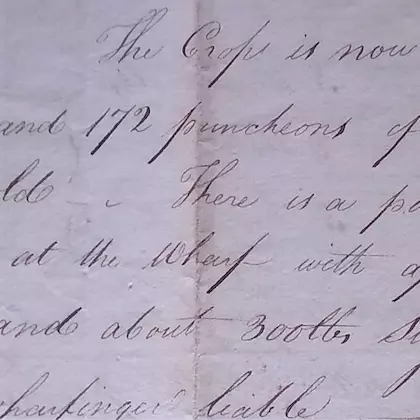 The Crop is now
and 172 puncheons of
ld - There is a pa
at the Wharf with a
and about 300lbs Su
wharfinger liable